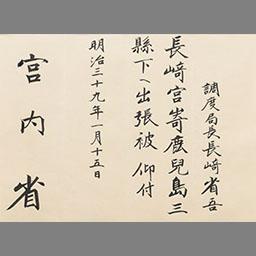 調度局長長﨑省吾
長﨑宮崎鹿兒島三
縣下ヘ出張被 仰付
明治三十九年一月十五日
宮内省